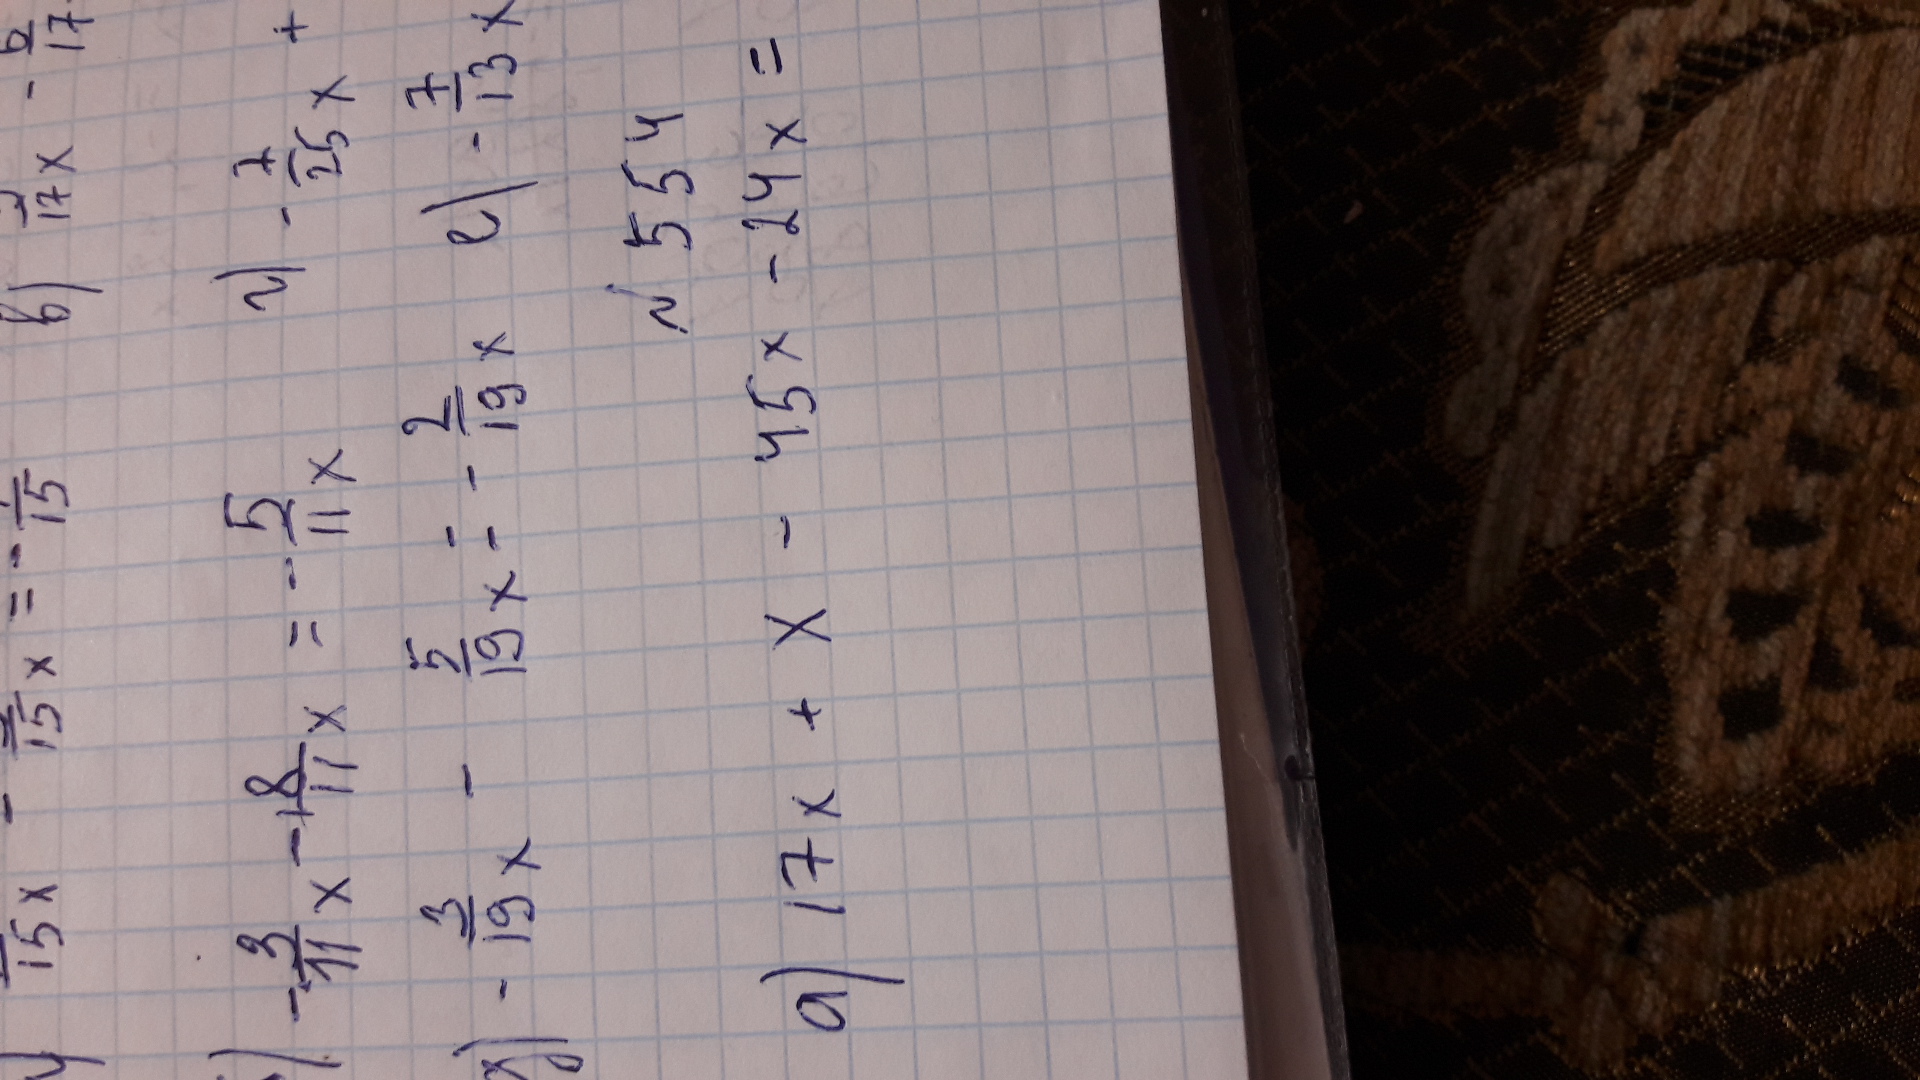 15x - /15 x = - 1/15 в) /17 x - 6/17
) - 3/11 x - 8/11 x = - 5/11 x г) - 7/25 x +
д) - 3/19 x - 5/19 x = - 2/19 x е) - 7/13 x
№ 554
а) 17x + x - 45x - 24x =